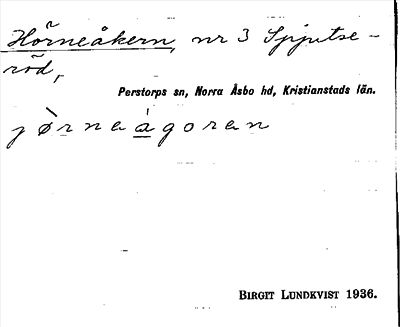 Hörneåkern, nr 3 Spjutse-
röd,
Perstorps sn, Norra Åsbo hd, Kristianstads län.
jò̤rneágoren
BIRGIT LUNDKVIST 1936.